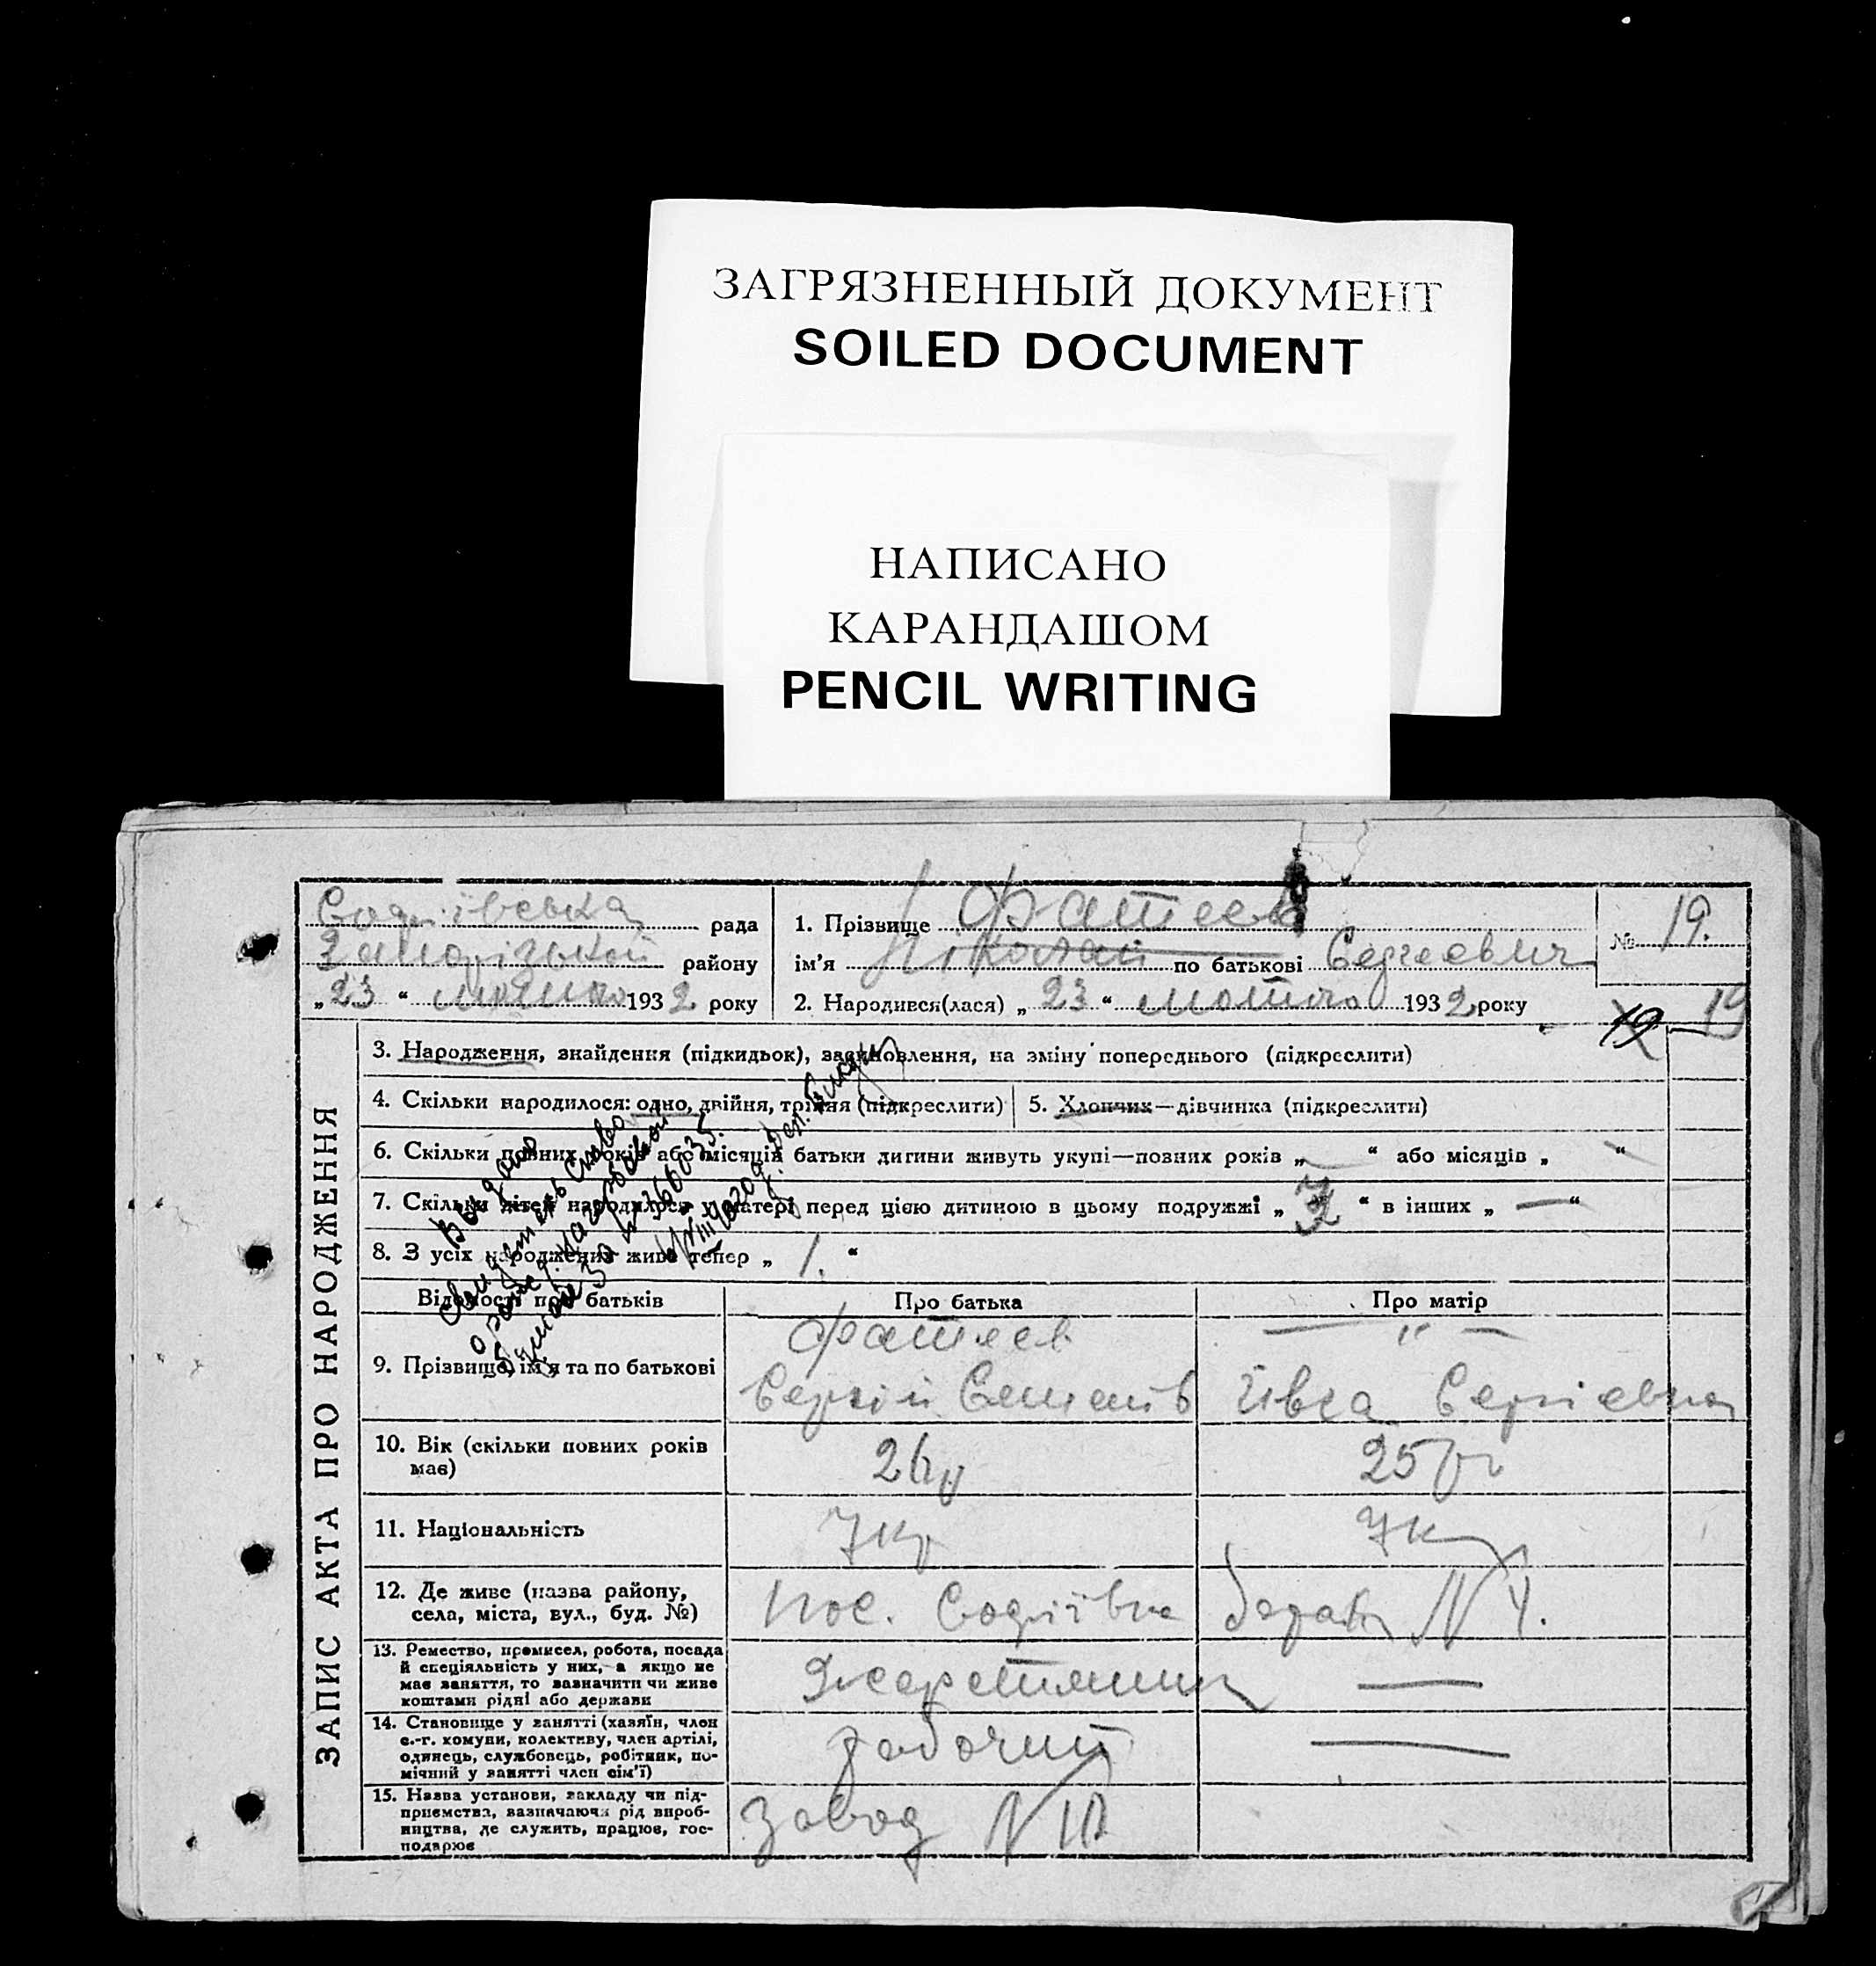 ЗАГРЯЗНЕННЫЙ ДОКУМЕНТ
SOILED DOCUMENT
НАПИСАНО
КАРАНДАШОМ
PENCIL WRITING
Софіївська рада
Запорізької району
„23“ лютого 1932 року
1. Прізвище Фатеев
ім’я Николай по батькові Сергеевич
2. Народився(лася) „23“ лютого 1932 року
№ 19.
19
ЗАПИС АКТА ПРО НАРОДЖЕННЯ
3. Народження, знайдення (підкидьок), засиновлення, на зміну попереднього (підкреслити)
4. Скільки народилося: одно, двійня, трійня (підкреслити)
5. Хлопчик—дівчинка (підкреслити)
6. Скільки повних років або місяців батьки дитини живуть укупі—повних років „—“ або місяців „—“
7. Скільки дітей народилося у матері перед цією дитиною в цьому подружжі „ “ в інших „—“
8. З усіх народжених живе тепер „1.“
Видано
Відомості про батьків
Про батька
Про матір
9. Прізвище, ім’я та по батькові
Фатеев
— " —
Сергій
Сергіевна
10. Вік (скільки повних років
має)
26
25
11. Національність
Укр
Укр
12. Де живе (назва району,
села, міста, вул., буд. №)
пос. Софіївка барак № 4.
13. Ремество, промисел, робота, посада
й спеціяльність у них, а якщо не
має заняття, то вазначити чи живе
коштами рідні або держави
—
14. Становище у занятті (хазяїн, член
с.-г. комуни, колективу, член артілі,
одинець, службовець, робітник, по-
мічний у занятті член сім’ї)
рабочий
—
15. Назва установи, закладу чи під-
приємства, вазначаючи рід вироб-
ництва, де служить, працює, гос-
подарює
завод №